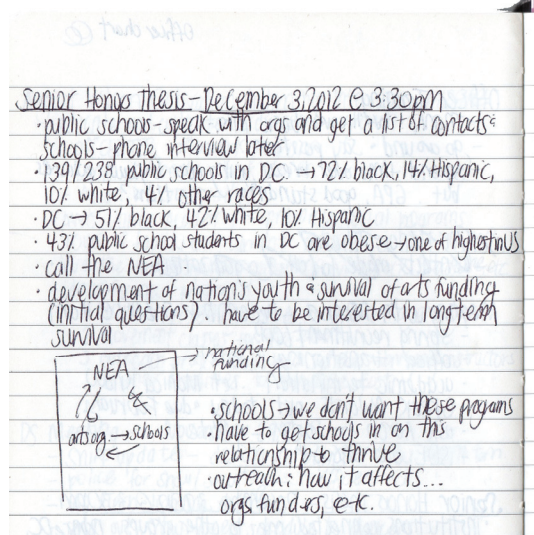 Senior Honors Thesis - December 3, 2012 @ 3:30pm
· public schools - speak with orgs and get a list of contacts &
schools - phone interview later
· 139/238 public schools in DC → 72% black, 14% Hispanic,
10% white, 4% other races
· DC → 51% black, 42% white, 10% Hispanic
· 43% public school students in DC are obese → one of highest in US
· call the NEA
· development of nation's youth & survival of arts funding
(initial questions). have to be interested in long term
survival
NEA → national
funding
arts org. → schools
· schools → we don't want these programs
· have to get schools in on this
relationship to thrive
· outreach: how it affects...
orgs, funders, etc.